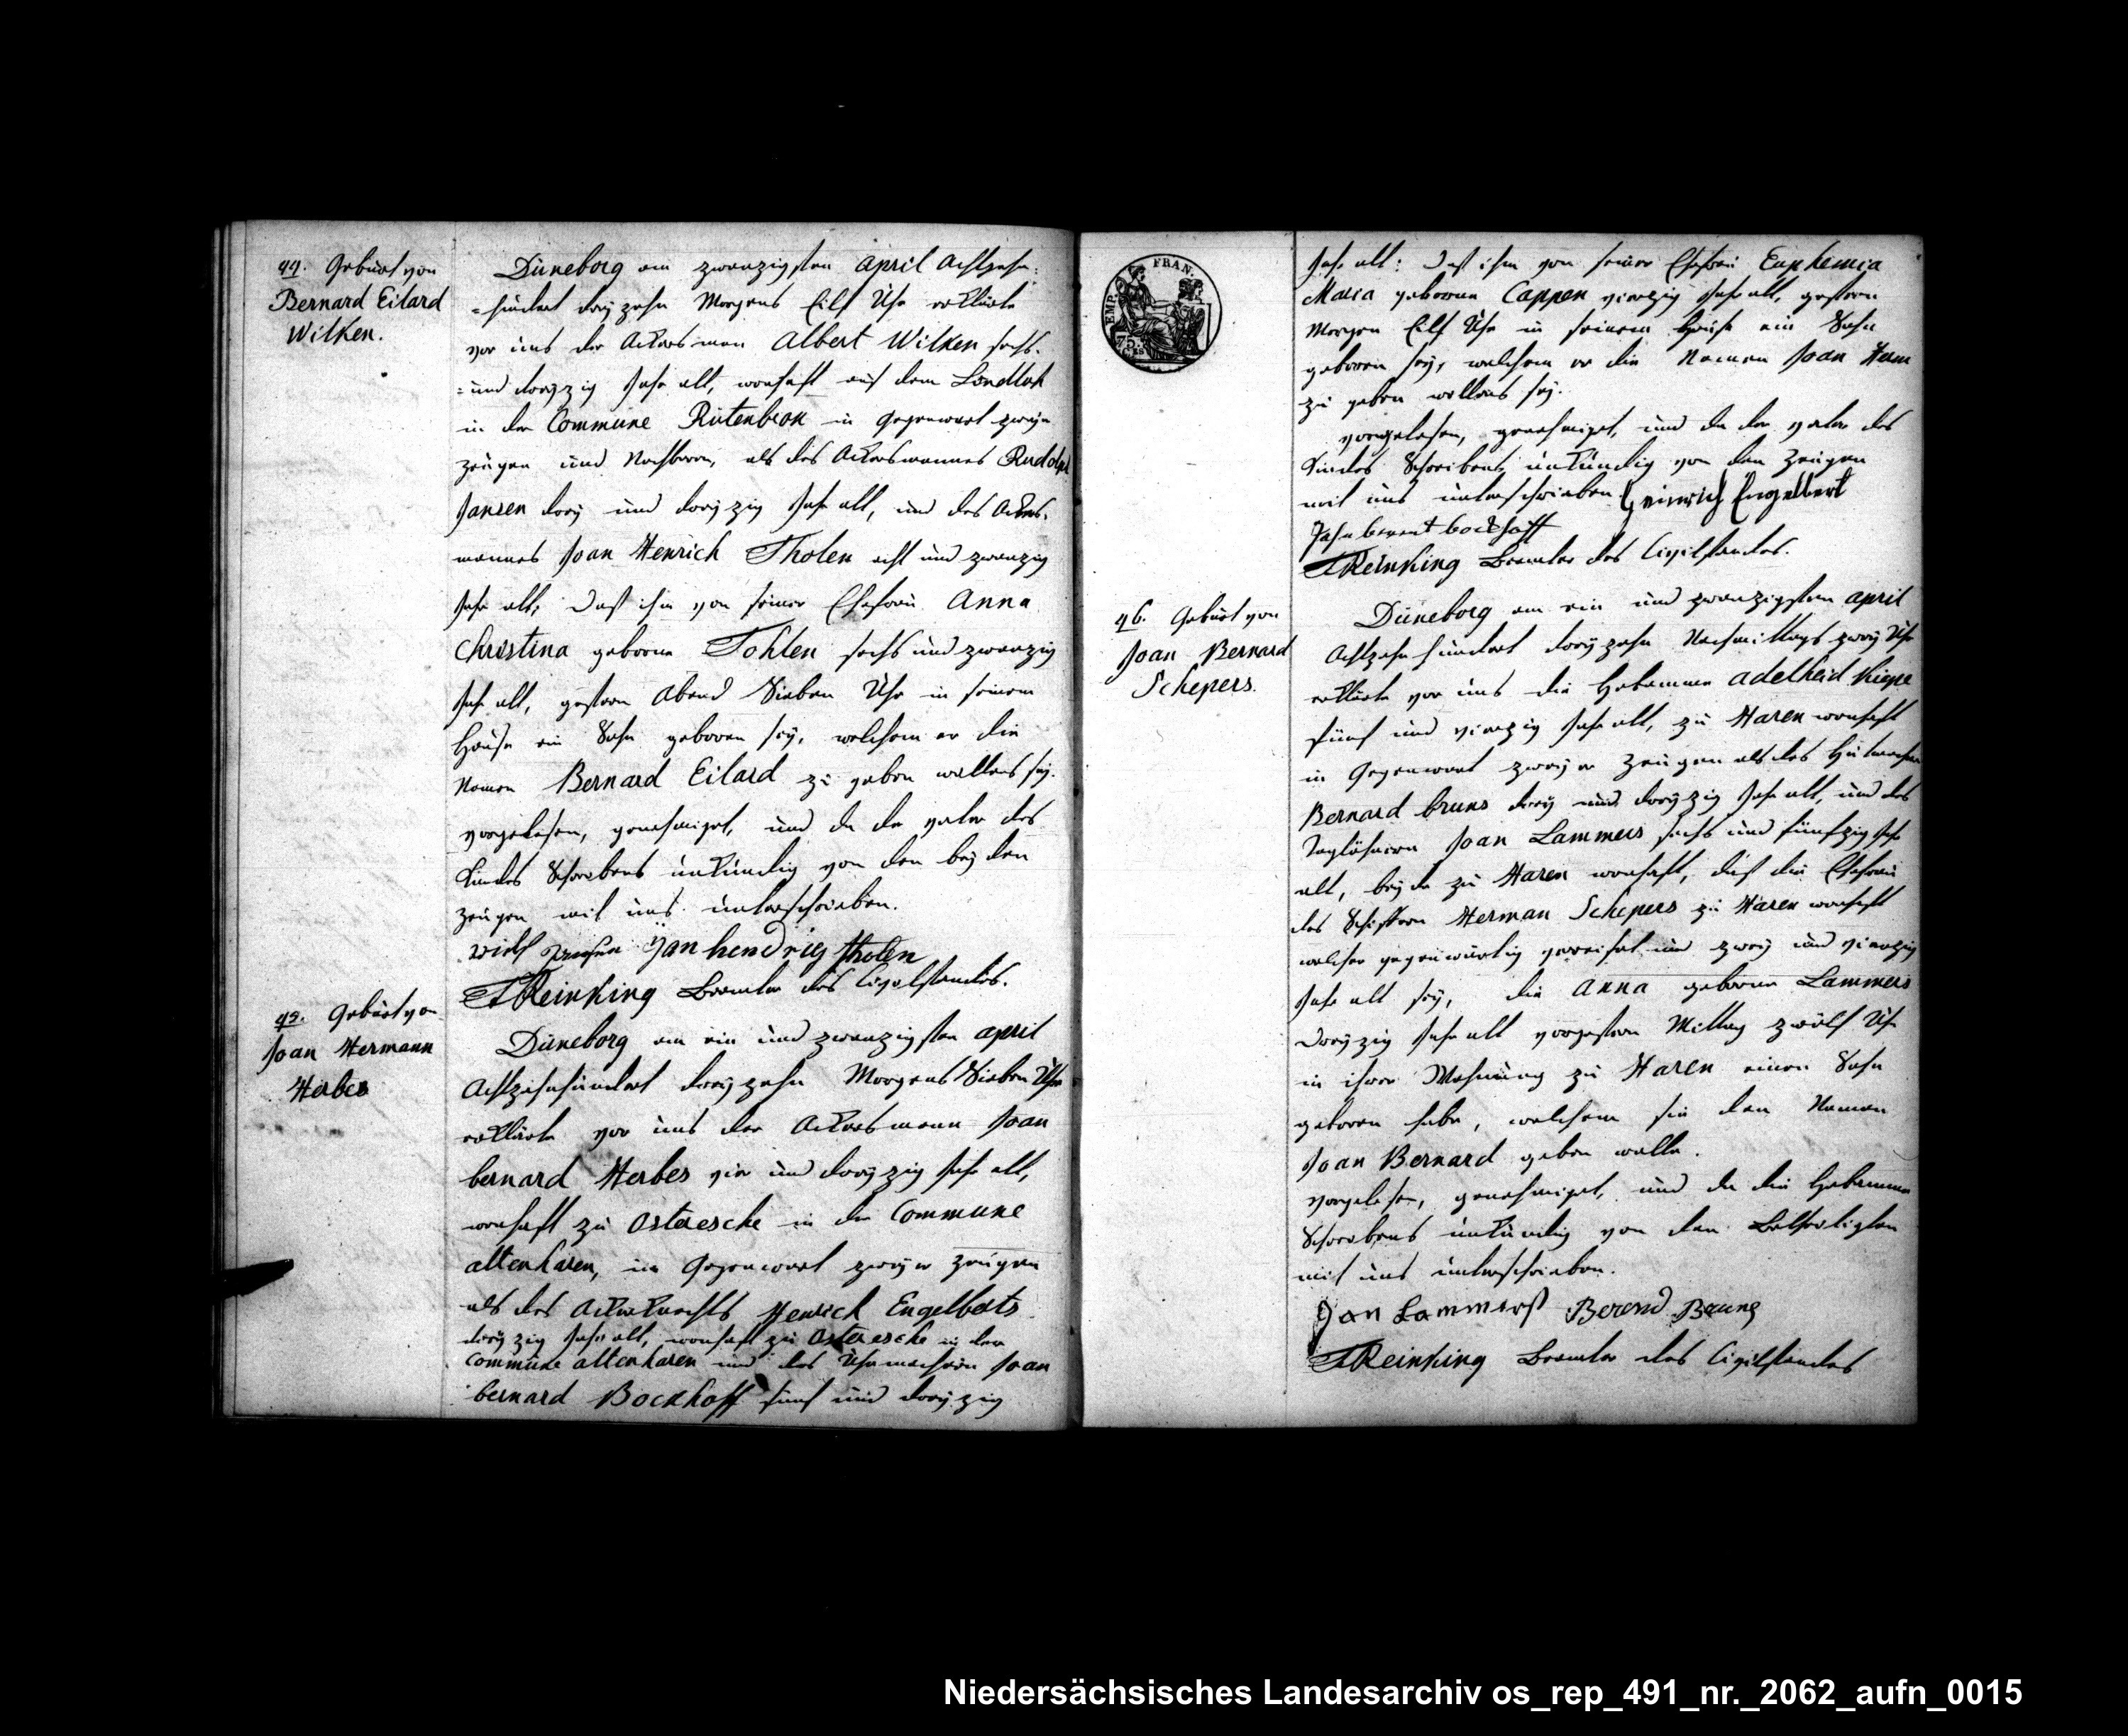 44. Geburt von
Bernard Eilard
Wilken.
Düneborg am zwanzigsten april Achtzehn=
=hundert dreyzehn Morgens Eilf Uhr erklärte
vor uns der Ackersman Albert Wilken sechs=
=und dreyzig Jahr alt, wonhaft auf dem
in der Commune Rütenbrok in Gegenwart zweyer
zeugen und Nachbaren, als des Ackersmannes Rudolph
Jansen drey und dreyzig Jahr alt, und des Ackers=
mannes Joan Henrich Tholen acht und zwanzig
Jahr alt, Daß ihm von seiner Ehefrau Anna
Christina geborne Tohlen sechs und zwanzig
Jahr alt, gestern Abend Sieben Uhr in seinem
Hause ein Sohn geboren sey, welchem er die
Namen Bernard Eilard zu geben willens sey.
vorgelesen, genehmiget, und da der vater des
Kindes Schreibens unkundig von den beyden
zeugen mit uns unterschrieben.
Jan hendriq tholen
Reinking Beamter des Civilstandes.
45. Geburt von
Joan Hermann
Herbes
Düneborg am ein und zwanzigsten april
Achtzehnhundert dreyzehn Morgens Sieben Uhr
erklärte vor uns der Ackersmann Joan
bernard Herbes vier und dreyzig Jahr alt,
wonhaft zu Osteresche in der Commune
altenharen, in Gegenwart zweyer zeugen
als des Ackerknechts Henrich Engelberts
dreyzig Jahr alt, wonhaft zu Osteresche in der
Commune altenharen und des Uhrmachern Joan
bernard Bockhoff fünf und dreyzig
EMP. FRAN.
75.
Jahr alt: Daß ihm von seiner Ehefrau Euphemia
Maria geborne Cappen vierzig Jahr alt, gestern
Morgen Eilf Uhr in seinem Hause ein Sohn
geboren sey, welchem er die Namen Joan Herm
zu geben willens sey.
vorgelesen, genehmiget, und da der vater des
Kindes Schreibens unkundig von den Zeugen
mit uns unterschrieben. Heinrich Engelbert
Jahn berent bockhoff
Reinking Beamter des Civilstandes.
46. Geburt von
Joan Bernard
Schepers.
Düneborg am ein und zwanzigsten april
Achtzehnhundert dreyzehn Nachmittags zwey Uhr
erklärte vor uns die Hebamme adelheid Kiepe
fünf und vierzig Jahr alt, zu Haren wonhaft
in Gegenwart zweyer Zeugen als des Hutmachers
Bernard bruns drey und dreyzig Jahr alt, und des
Taglöhnern Joan Lammers sechs und fünfzig Jahr
alt, beyde zu Haren wonhaft, daß die Ehefrau
des Schiffern Herman Schepers zu Haren wonhaft
welcher gegenwärtig verreiset und zwey und vierzig
Jahr alt sey, die Anna geborne Lammers
Dreyzig Jahr alt vorgestern Mittag zwölf Uhr
in ihrer Wohnung zu Haren einen Sohn
geboren habe, welchem sie den Namen
Joan Bernard geben wolle.
vorgelesen, genehmiget, und da die Hebamme
Schreibens unkundig von den Betheiligten
mit uns unterschrieben.
Jan Lammers Berend Bruns
Reinking Beamter des Civilstandes
Niedersächsisches Landesarchiv os_rep_491_nr._2062_aufn_0015